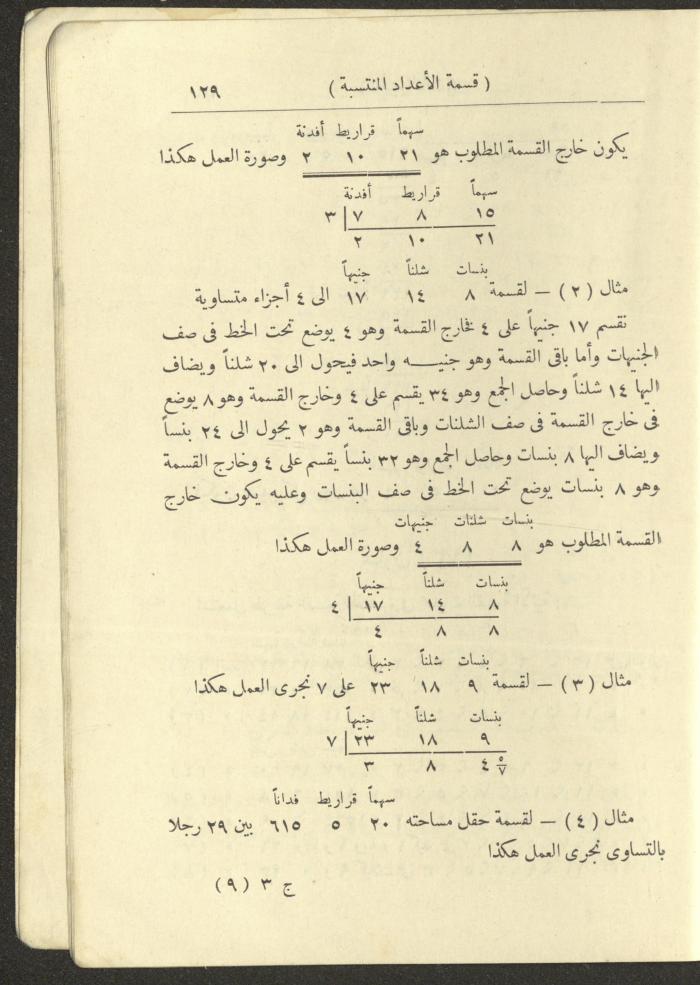 ( قسمة الأعداد المنتسبة ) ١٢٩
سهماً قراريط أفدنة
يكون خارج القسمة المطلوب هو ٢١ ١٠ ٢ وصورة العمل هكذا
سهماً قراريط أفدنة
١٥ ٨ ٧ | ٣
٢١ ١٠ ٢
بنسات شلناً جنيهاً
مثال ( ٢ ) — لقسمة ٨ ١٤ ١٧ الى ٤ أجزاء متساوية
نقسم ١٧ جنيهاً على ٤ فخارج القسمة وهو ٤ يوضع تحت الخط فى صف
الجنيهات وأما باقى القسمة وهو جنيه واحد فيحول الى ٢٠ شلناً ويضاف
اليها ١٤ شلناً وحاصل الجمع وهو ٣٤ يقسم على ٤ وخارج القسمة وهو ٨ يوضع
فى خارج القسمة فى صف الشلنات وباقى القسمة وهو ٢ يحول الى ٢٤ بنساً
ويضاف اليها ٨ بنسات وحاصل الجمع وهو ٣٢ بنساً يقسم على ٤ وخارج القسمة
وهو ٨ بنسات يوضع تحت الخط فى صف البنسات وعليه يكون خارج
بنسات شلنات جنيهات
القسمة المطلوب هو ٨ ٨ ٤ وصورة العمل هكذا
بنسات شلناً جنيهاً
٨ ١٤ ١٧ | ٤
٨ ٨ ٤
بنسات شلناً جنيهاً
مثال ( ٣ ) — لقسمة ٩ ١٨ ٢٣ على ٧ نجرى العمل هكذا
بنسات شلناً جنيهاً
٩ ١٨ ٢٣ | ٧
٤ ٥/٧ ٨ ٣
سهماً قراريط فداناً
مثال ( ٤ ) — لقسمة حقل مساحته ٢٠ ٥ ٦١٥ بين ٢٩ رجلا
بالتساوى نجرى العمل هكذا
ج ٣ ( ٩ )